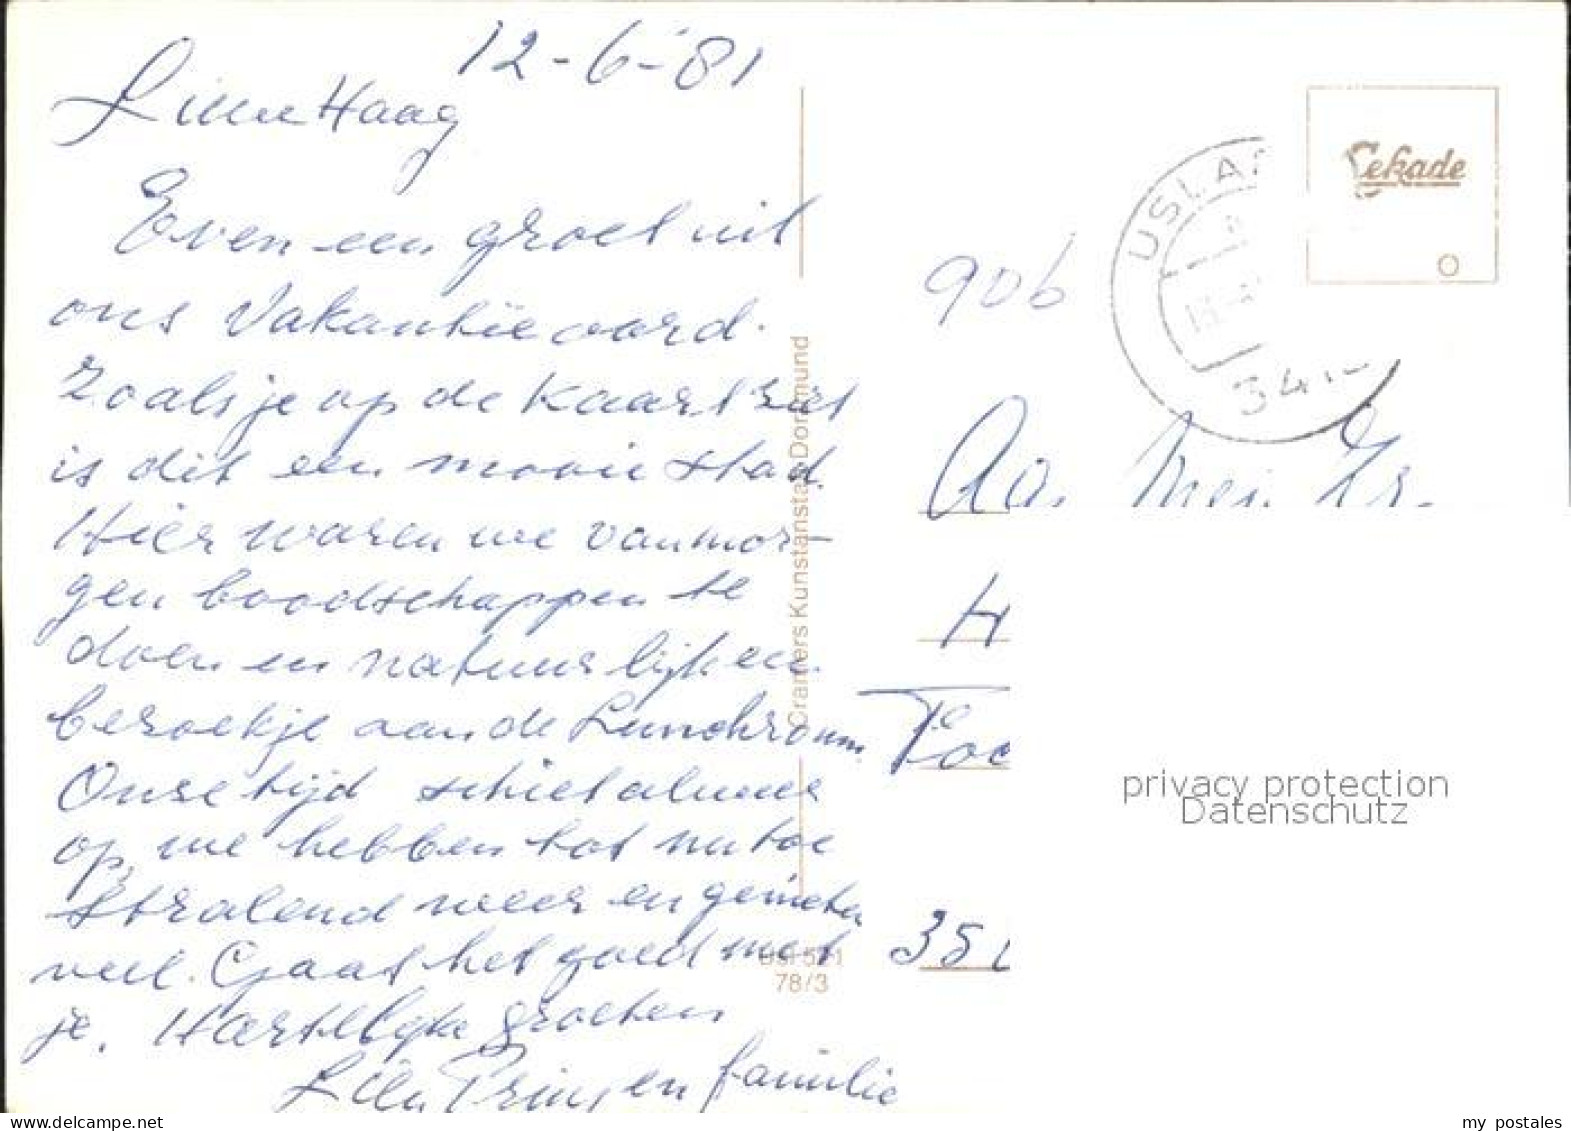 12-6-'81
Haag
Even een groet uit
ons Vakantieoord.
Zoals je op de Kaart ziet
is dit een mooie stad.
Hier waren we vanmor-
gen boodschappen te
doen en natuurlijk een
bezoekje aan de Lunchroom.
Onze tijd schiet alweer
op, we hebben tot nu toe
stralend weer en genieten
veel. Gaat het goed met
je. Hartelijke groeten
en familie
Cramers Kunstanstalt Dortmund
78/3
Cekade
USLA
34
906
Aa. Mej.
H
Te
35
privacy protection
Datenschutz
my postales